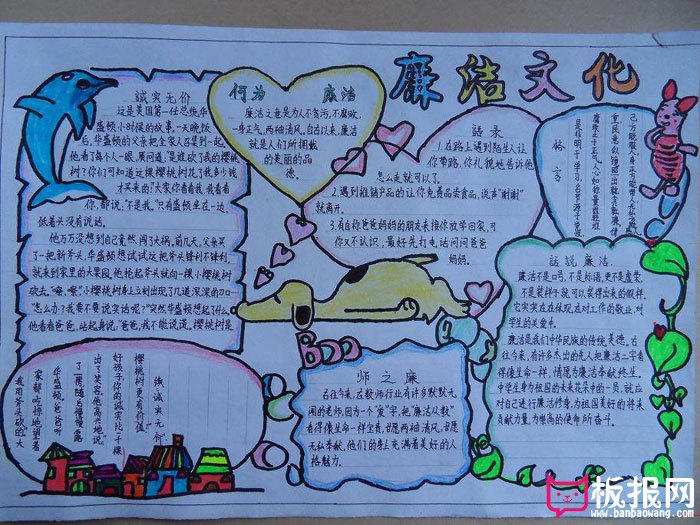 廉洁文化
诚实无价
这是美国第一任总统华
盛顿小时候的故事,一天晚饭
后,华盛顿的父亲把全家人召集到一起,
他看了每个人一眼,厉问道:"是谁砍了我的樱桃
树?你们可知道这棵樱桃树花了我多少钱
才买来的?"大家你看看我,我看看
你,都说,"不是我。"只有盛顿坐在一边,
低着头没有说话。
他万万没想到自己竟然,闯了大祸。前几天,父亲买
了一把新斧头,华盛顿想试试这把斧头锋利不锋利,
就来到家里的大果园,他抡起斧头就向一棵小樱桃树
砍去。"嚓、嚓"小樱桃树身上立刻出现了几道深深的口
怎么办?我要不要说实话呢?"突然华盛顿想起了什么
他看着爸爸,站起身说,爸爸,我不能说谎。樱桃树是
我用斧头砍的。"大
家都吃惊地望着
华盛顿爸爸听
了一会随后慢慢露
出了笑容,他高兴地说,
好孩子,你的诚实比千棵
樱桃树更有价值!"
诚实无价
何为 廉洁
廉洁之意是为人不贪污,不腐败,
一身正气,两袖清风,自古以来,廉洁
就是人们所拥戴
的美丽的品
德。
语录
1.在路上遇到陌生人让
你带路,你礼貌地告诉他
怎么走就可以了。
2.遇到推销产品的让你免费品尝食品,说声"谢谢"
就离开。
3.有自称爸爸妈妈的朋友来接你放学回家,可
你又不认识,最好先打电话问问爸爸
妈妈。
格言
师之廉
古往今来,在教师行业有许多默默无
闻的老师,因为一个"廉"字,把"廉洁从教"
看得像生命一样宝贵,甘愿两袖清风,甘愿
无私奉献,他们的身上充满着美好的人
格魅力。
话说廉洁
廉洁不是口号,不是标语,更不是虚荣,
不是装样子就可以装得出来的假样,
它实实在在体现在对工作的敬业,对
学生的关爱中。
廉洁是我们中华民族的传统美德。古
往今来,有许多杰出的先人把廉洁二字看
得像生命一样,情愿为廉洁奉献终生。
中学生身为祖国的未来花朵中的一员,就应
对自己进行廉洁修身,为祖国美好的将来
贡献力量,为崇高的使命所奋斗。
板报网
www.banbaowang.com